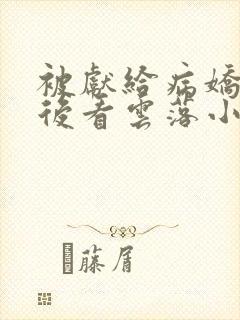 被獻給病嬌
後看雲落小
藤屑